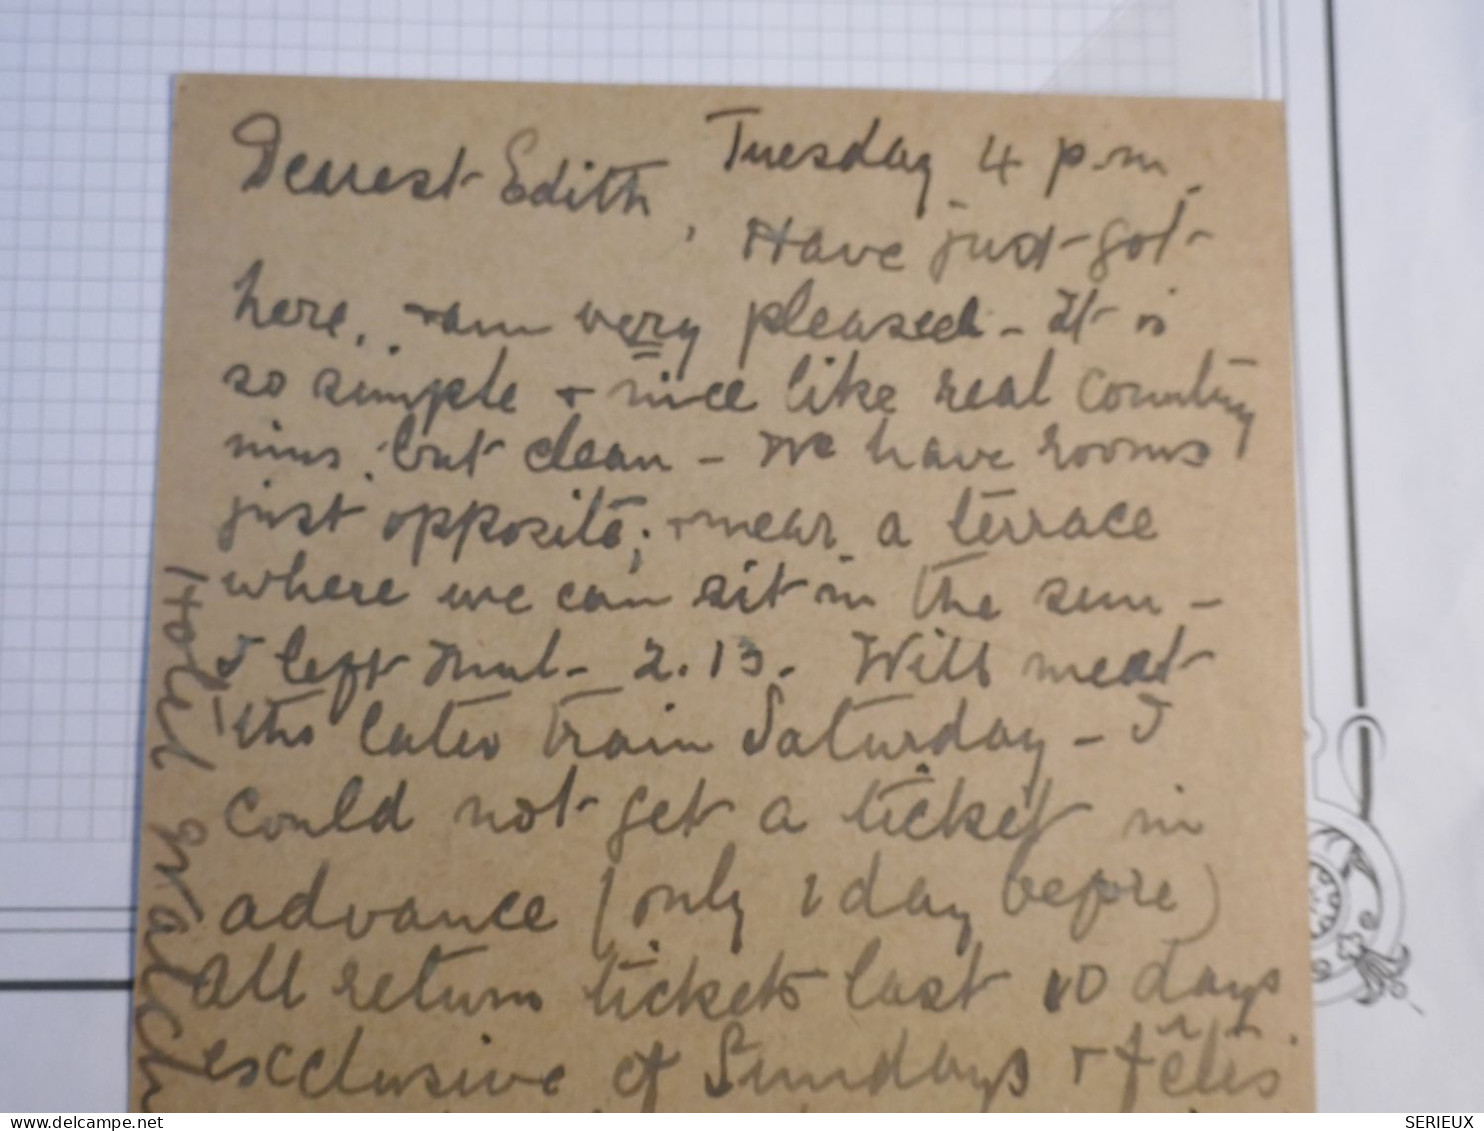 Tuesday 4 p.m.
Dearest Edith,
Have just got
here, + am very pleased - It is
so simple + nice like real country
inns, but clean - We have rooms
just opposite, + near a terrace
where we can sit in the sun -
I left Mul- 2.13. Will meet
the later train Saturday - I
could not get a ticket in
advance (only 1 day before)
All return tickets last 10 days
exclusive of Sundays + fêtes
Hotel
delcampe.net
SERIEUX